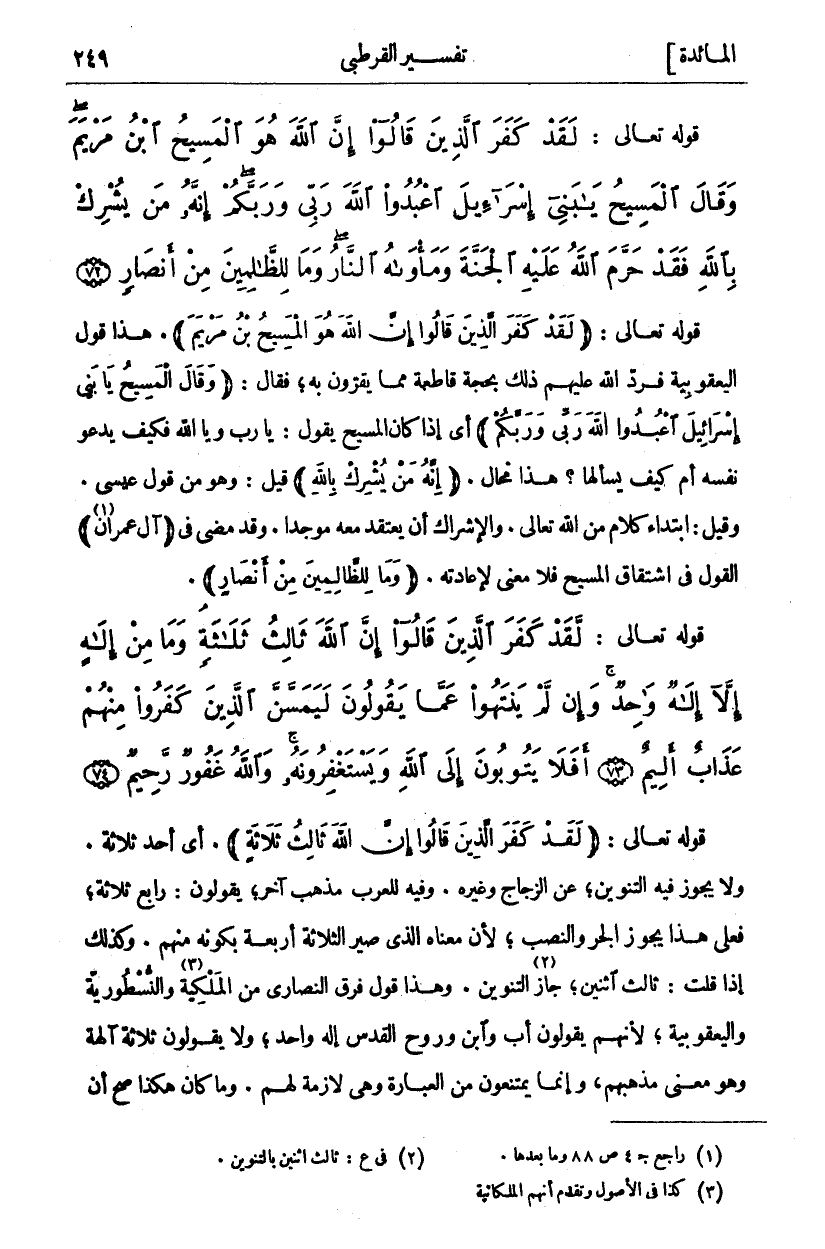 المائدة] تفسير القرطبى ٢٤٩
قوله تعالى : لَقَدْ كَفَرَ ٱلَّذِينَ قَالُوٓا۟ إِنَّ ٱللَّهَ هُوَ ٱلْمَسِيحُ ٱبْنُ مَرْيَمَ ۖ
وَقَالَ ٱلْمَسِيحُ يَـٰبَنِىٓ إِسْرَٰٓءِيلَ ٱعْبُدُوا۟ ٱللَّهَ رَبِّى وَرَبَّكُمْ ۖ إِنَّهُۥ مَن يُشْرِكْ
بِٱللَّهِ فَقَدْ حَرَّمَ ٱللَّهُ عَلَيْهِ ٱلْجَنَّةَ وَمَأْوَىٰهُ ٱلنَّارُ ۖ وَمَا لِلظَّـٰلِمِينَ مِنْ أَنصَارٍ ﴿٧٢﴾
قوله تعالى : ﴿ لَقَدْ كَفَرَ الَّذِينَ قَالُوا إِنَّ اللهَ هُوَ الْمَسِيحُ بْنُ مَرْيَمَ ﴾ . هــذا قول
اليعقوبية فــردّ الله عليهــم ذلك بحجة قاطعة ممــا يقرّون به؛ فقال : ﴿ وَقَالَ الْمَسِيحُ يَا بَنِي
إِسْرَائِيلَ ٱعْبُــدُوا اللهَ رَبِّى وَرَبَّكُمْ ﴾ أى إذا كان المسيح يقول : يا رب ويا الله فكيف يدعو
نفسه أم كيف يسألها ؟ هــذا محال . ﴿ إِنَّهُ مَنْ يُشْرِكْ بِاللهِ ﴾ قيل : وهو من قول عيسى .
وقيل: ابتداء كلام من الله تعالى . والإشراك أن يعتقد معه موجدا . وقد مضى فى ﴿آل عمران﴾(١)
القول فى اشتقاق المسيح فلا معنى لإعادته . ﴿ وَمَا لِلظَّالِمِينَ مِنْ أَنْصَارٍ ﴾ .
قوله تعالى : لَّقَدْ كَفَرَ ٱلَّذِينَ قَالُوٓا۟ إِنَّ ٱللَّهَ ثَالِثُ ثَلَـٰثَةٍ ۘ وَمَا مِنْ إِلَـٰهٍ
إِلَّآ إِلَـٰهٌ وَٰحِدٌ ۚ وَإِن لَّمْ يَنتَهُوا۟ عَمَّا يَقُولُونَ لَيَمَسَّنَّ ٱلَّذِينَ كَفَرُوا۟ مِنْهُمْ
عَذَابٌ أَلِيمٌ ﴿٧٣﴾ أَفَلَا يَتُوبُونَ إِلَى ٱللَّهِ وَيَسْتَغْفِرُونَهُۥ ۚ وَٱللَّهُ غَفُورٌ رَّحِيمٌ ﴿٧٤﴾
قوله تعــالى : ﴿ لَقَــدْ كَفَرَ الَّذِينَ قَالُوا إِنَّ اللهَ ثَالِثُ ثَلَاثَةٍ ﴾ . أى أحد ثلاثة .
ولا يجوز فيه التنوين؛ عن الزجاج وغيره . وفيه للعرب مذهب آخر؛ يقولون : رابع ثلاثة؛
فعلى هــذا يجوز الجر والنصب ؛ لأن معناه الذى صير الثلاثة أربعــة بكونه منهم . وكذلك
إذا قلت : ثالث ٱثنين؛ جاز التنوين(٢) . وهــذا قول فرق النصارى من المَلْكِيّة(٣) والنُّسْطُورية
واليعقوبية ؛ لأنهــم يقولون أب وٱبن وروح القدس إله واحد ؛ ولا يقــولون ثلاثة آلهة
وهو معنــى مذهبهم، وإنمــا يمتنعون من العبارة وهى لازمة لهــم . وما كان هكذا صح أن
(١) راجع جـ ٤ ص ٨٨ وما بعدها . (٢) فى ع : ثالث اثنين بالتنوين .
(٣) كذا فى الأصول وتقدم أنهم الملكانية